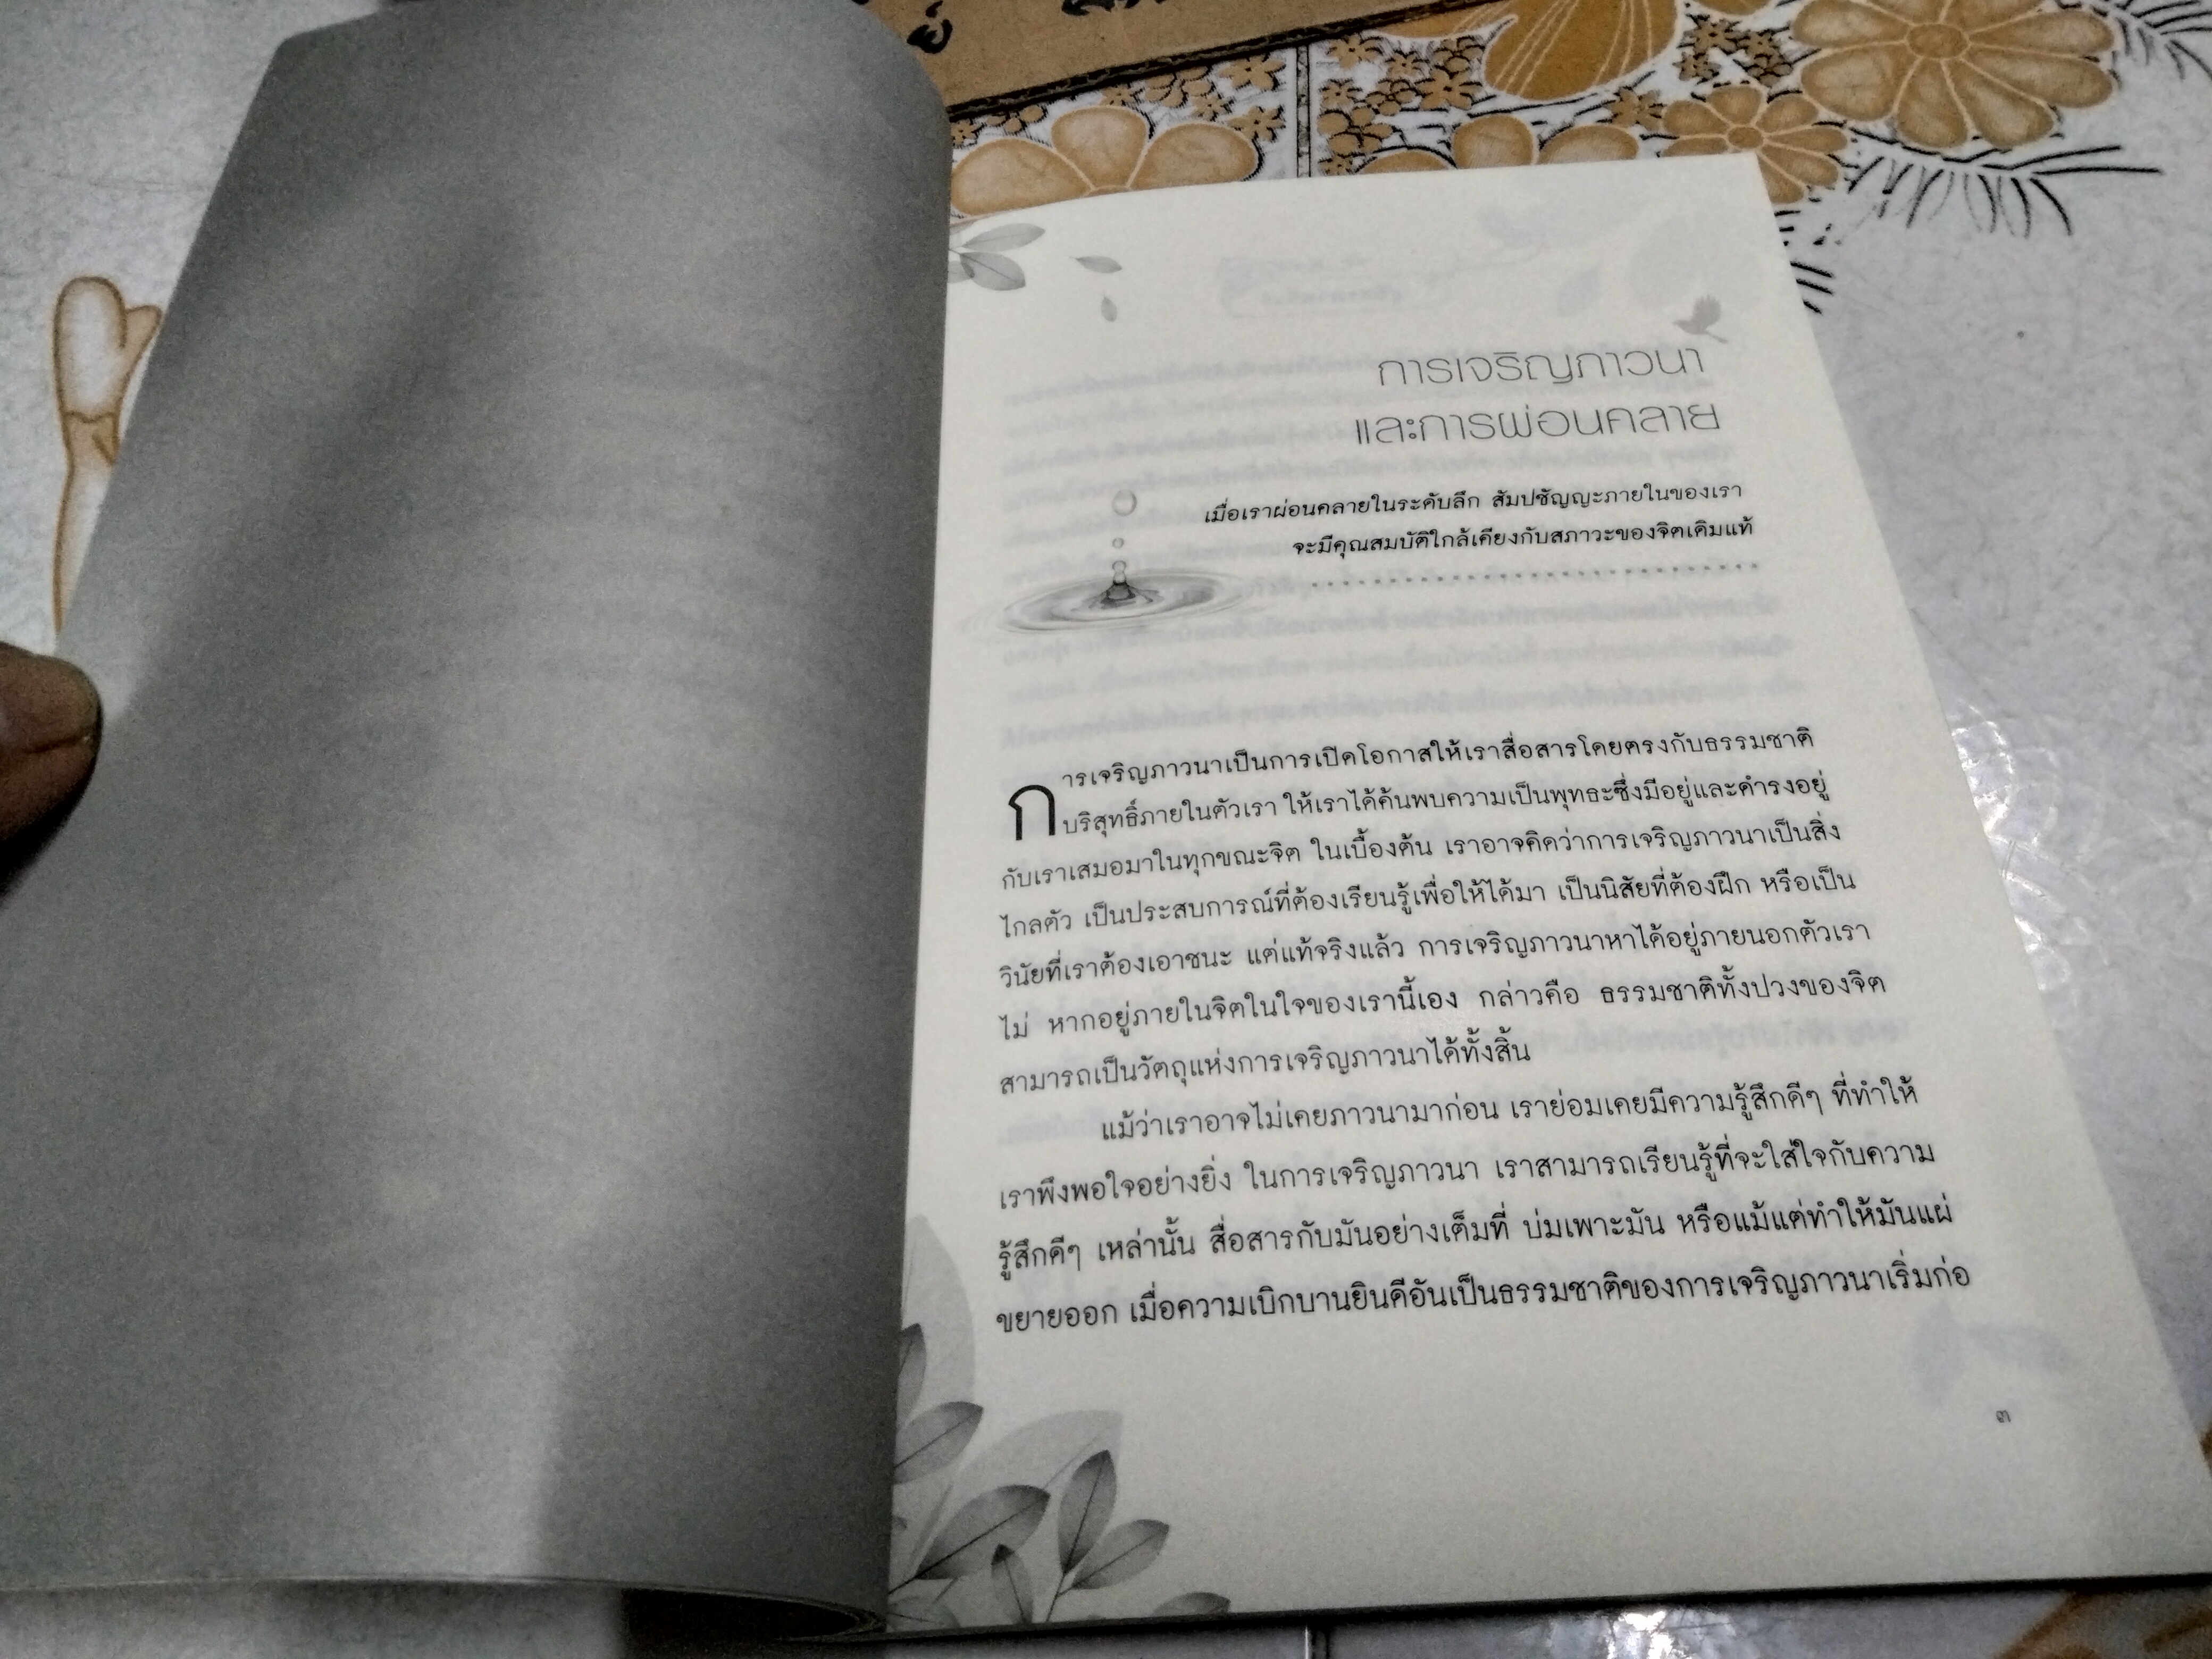 ย์
การเจริญภาวนา
และการผ่อนคลาย
เมื่อเราผ่อนคลายในระดับลึก สัมปชัญญะภายในของเรา
จะมีคุณสมบัติใกล้เคียงกับสภาวะของจิตเดิมแท้
การเจริญภาวนาเป็นการเปิดโอกาสให้เราสื่อสารโดยตรงกับธรรมชาติ
บริสุทธิ์ภายในตัวเรา ให้เราได้ค้นพบความเป็นพุทธะซึ่งมีอยู่และดำรงอยู่
กับเราเสมอมาในทุกขณะจิต ในเบื้องต้น เราอาจคิดว่าการเจริญภาวนาเป็นสิ่ง
ไกลตัว เป็นประสบการณ์ที่ต้องเรียนรู้เพื่อให้ได้มา เป็นนิสัยที่ต้องฝึก หรือเป็น
วินัยที่เราต้องเอาชนะ แต่แท้จริงแล้ว การเจริญภาวนาหาได้อยู่ภายนอกตัวเรา
ไม่ หากอยู่ภายในจิตในใจของเรานี้เอง กล่าวคือ ธรรมชาติทั้งปวงของจิต
สามารถเป็นวัตถุแห่งการเจริญภาวนาได้ทั้งสิ้น
แม้ว่าเราอาจไม่เคยภาวนามาก่อน เราย่อมเคยมีความรู้สึกดีๆ ที่ทำให้
เราพึงพอใจอย่างยิ่ง ในการเจริญภาวนา เราสามารถเรียนรู้ที่จะใส่ใจกับความ
รู้สึกดีๆ เหล่านั้น สื่อสารกับมันอย่างเต็มที่ บ่มเพาะมัน หรือแม้แต่ทำให้มันแผ่
ขยายออก เมื่อความเบิกบานยินดีอันเป็นธรรมชาติของการเจริญภาวนาเริ่มก่อ
๓